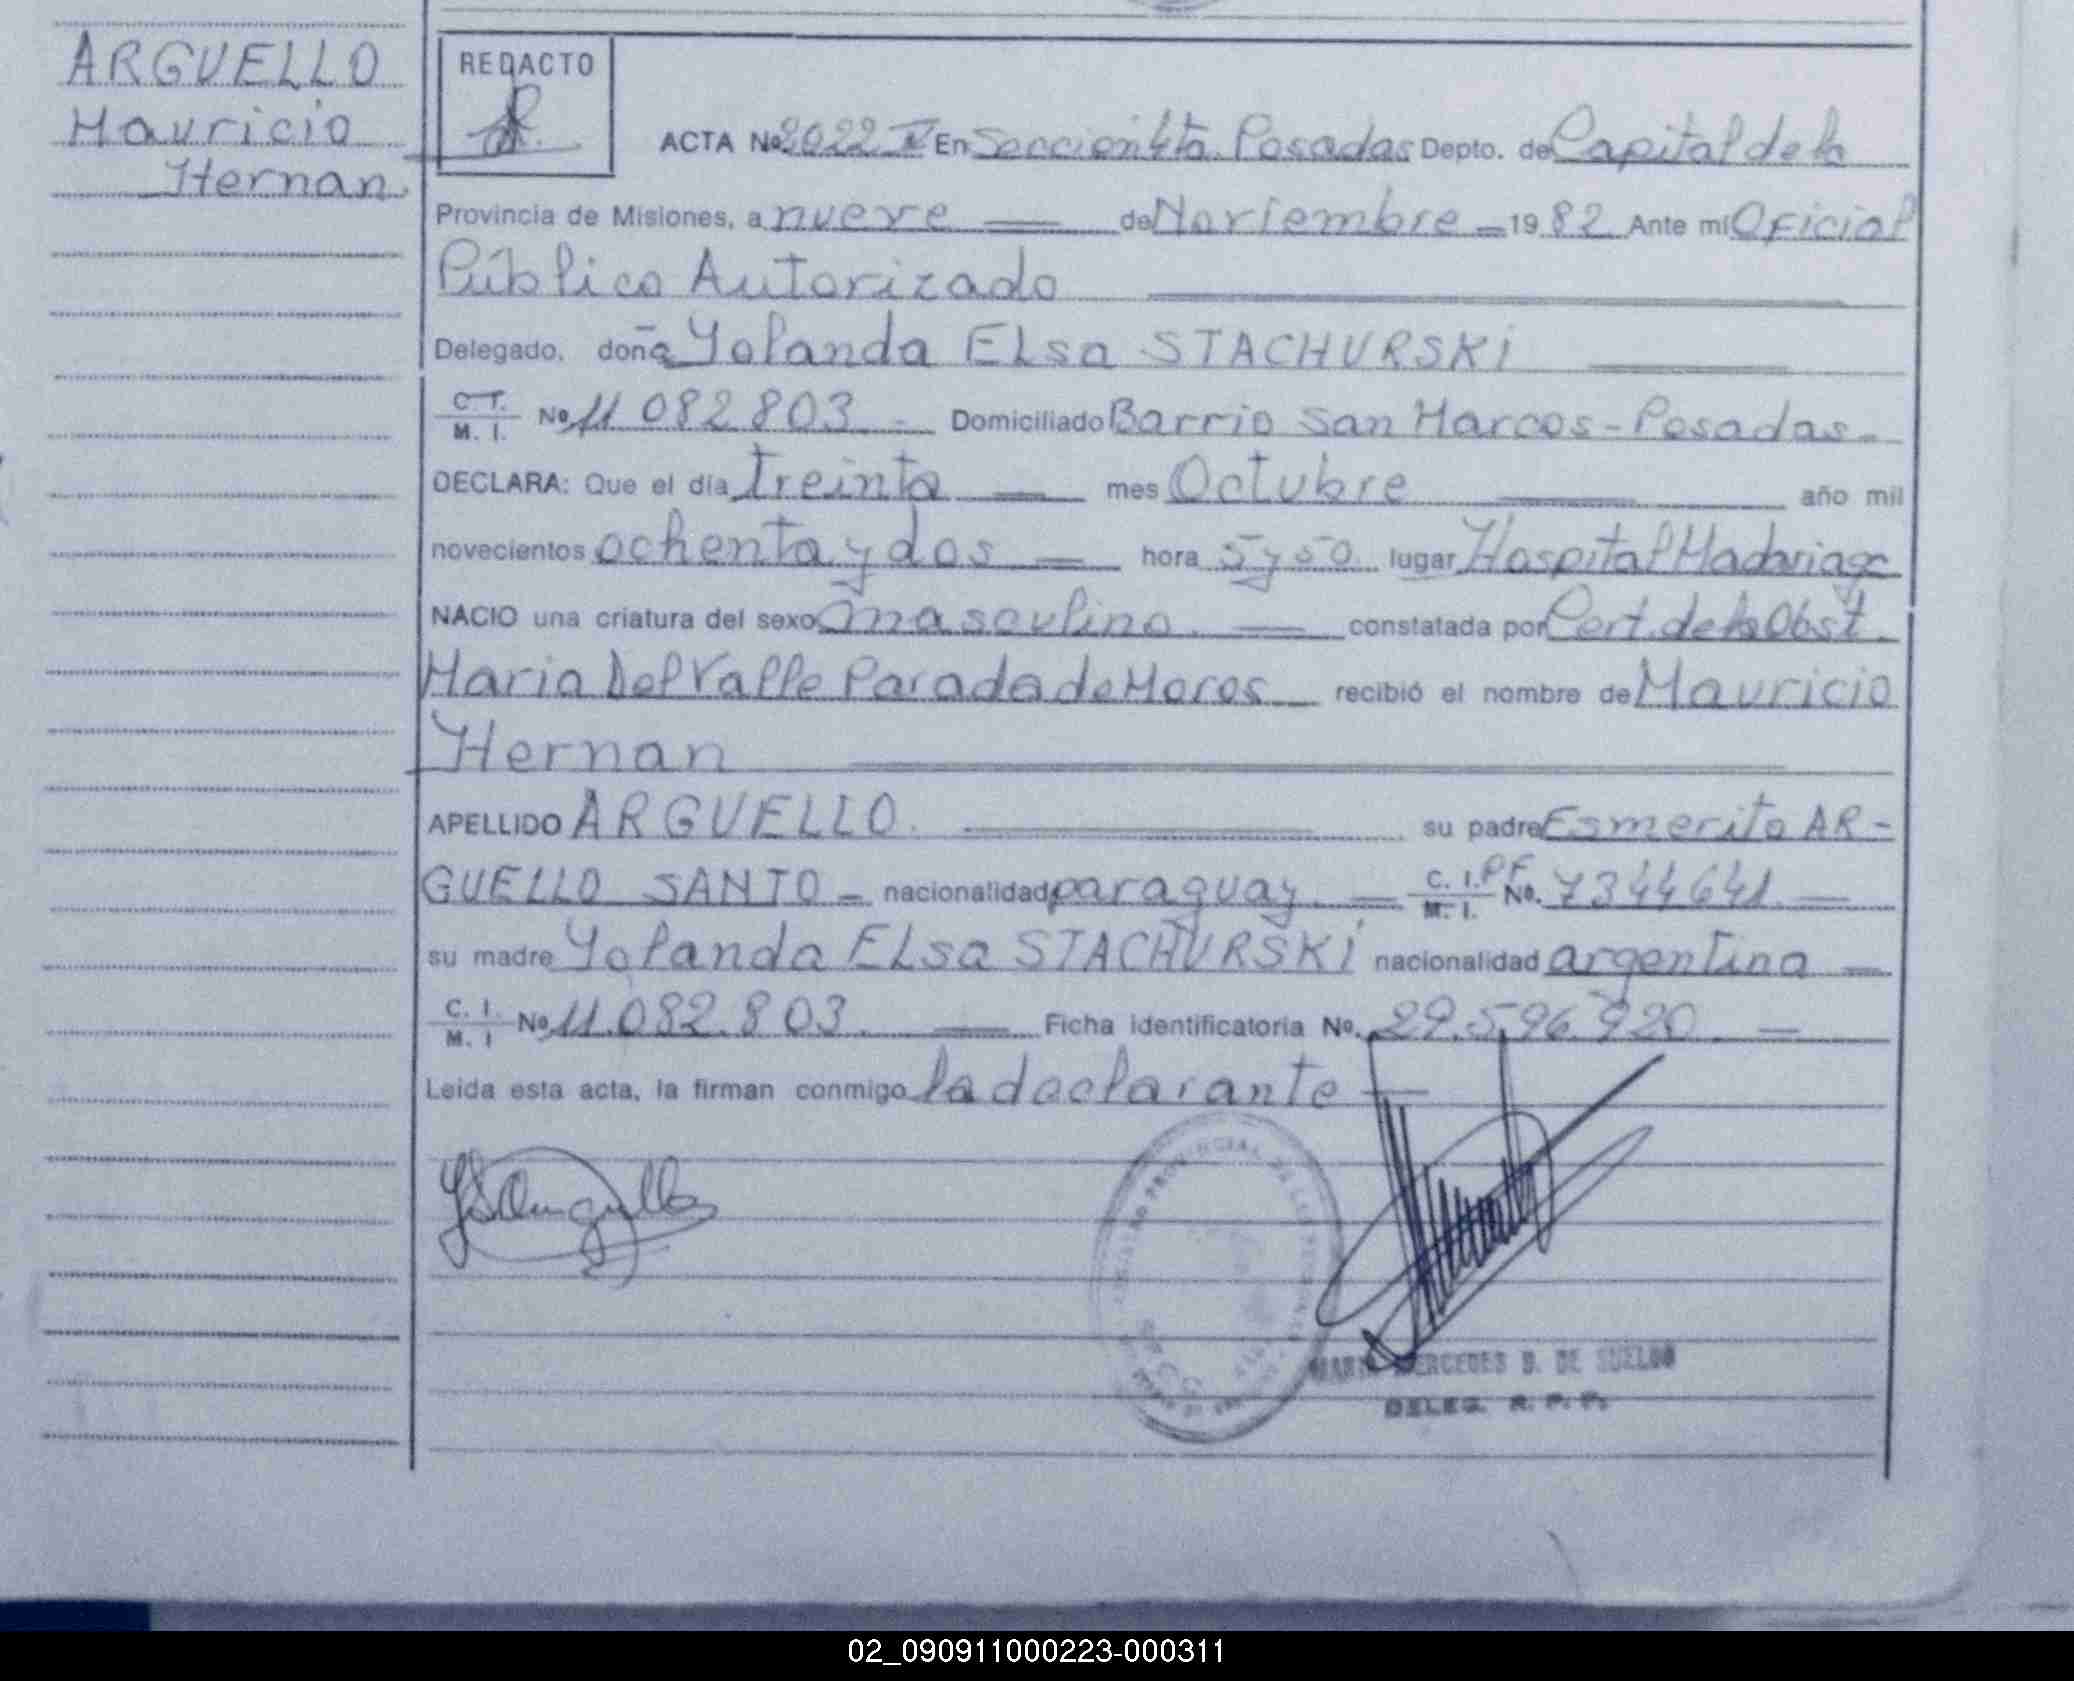 ARGUELLO
Mauricio
Hernan
REDACTO
ACTA No 2022 En Sección 4ta Posadas Depto. de Capital de la
Provincia de Misiones, a nueve de Noviembre 1982 Ante mi Oficial
Público Autorizado
Delegado, doña Yolanda Elsa STACHURSKI
C. I. M. I. No 11.082.803 Domiciliado Barrio San Marcos - Posadas -
DECLARA: Que el día treinta mes Octubre año mil
novecientos ochenta y dos hora 5 y 50 lugar Hospital Madariaga
NACIO una criatura del sexo masculino constatada por Cert. de la Obst.
Maria Del Valle Parada de Moros recibió el nombre de Mauricio
Hernan
APELLIDO ARGUELLO su padre Esmerito AR-
GUELLO SANTO nacionalidad paraguay C. I. PF M. I. No. 7344641
su madre Yolanda Elsa STACHURSKI nacionalidad argentina
C. I. M. I No 11.082.803 Ficha identificatoria No. 29.596.920
Leida esta acta, la firman conmigo la declarante
MARIA MERCEDES B. DE SUELDO
DELEG. R. P. P.
02_090911000223-000311